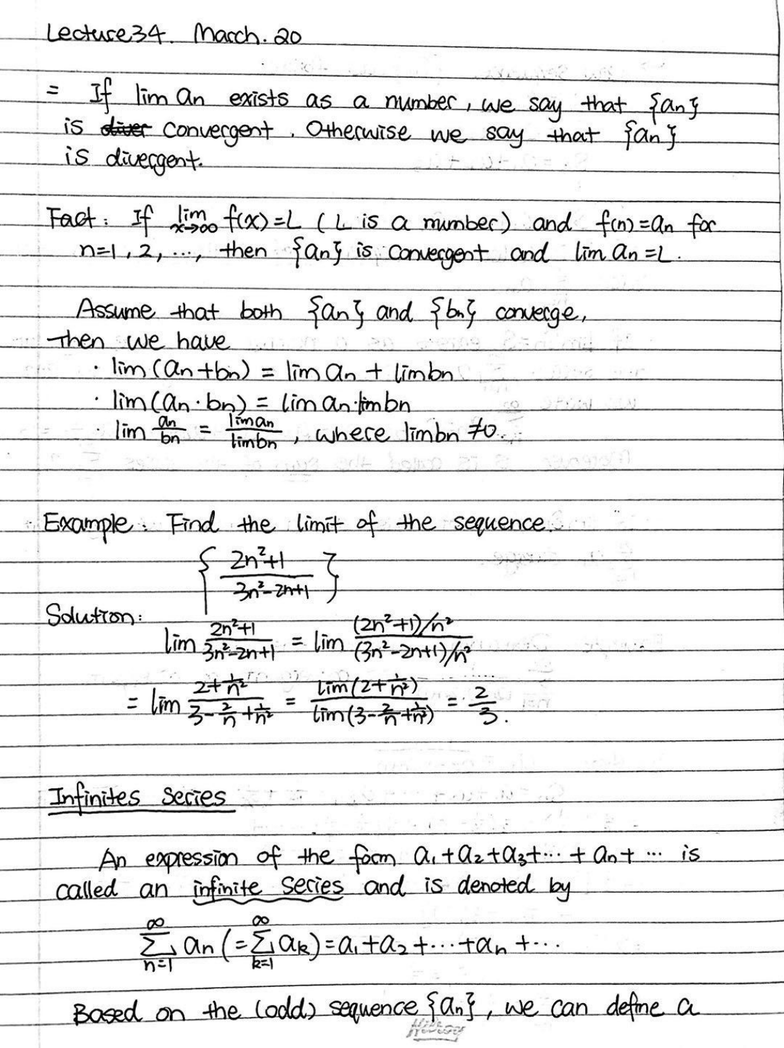 Lecture34. March. 20
= If lim an exists as a number, we say that {an}
is diver convergent. Otherwise we say that {an}
is divergent.
Fact: If lim x→∞ f(x)=L (L is a number) and f(n)=an for
n=1,2,…, then {an} is convergent and lim an=L.
Assume that both {an} and {bn} converge,
then we have
· lim(an+bn) = lim an + limbn
· lim(an·bn) = lim an·limbn
· lim an/bn = liman/limbn, where limbn≠0.
Example. Find the limit of the sequence.
{ (2n²+1)/(3n²-2n+1) }
Solution:
lim (2n²+1)/(3n²-2n+1) = lim ((2n²+1)/n²)/((3n²-2n+1)/n²)
= lim (2+1/n²)/(3-2/n+1/n²) = lim(2+1/n²)/lim(3-2/n+1/n²) = 2/3.
Infinites Series
An expression of the form a₁+a₂+a₃+…+an+… is
called an infinite series and is denoted by
∞∑n=1 an (=∞∑k=1 ak)=a₁+a₂+…+an+…
Based on the (odd) sequence {an}, we can define a